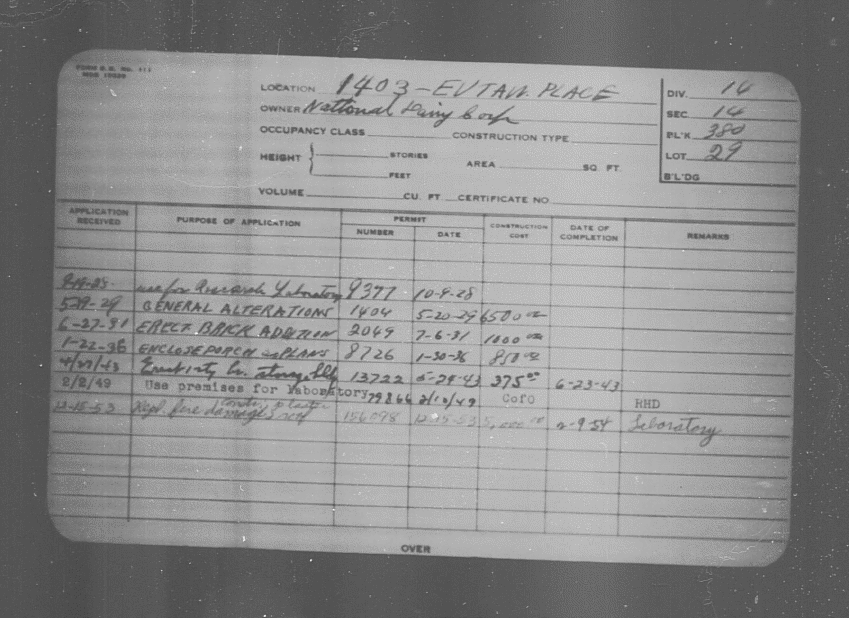 FORM B.E. No. 411
LOCATION 1403 - EUTAW. PLACE
OWNER National Dairy Corp
OCCUPANCY CLASS CONSTRUCTION TYPE
HEIGHT { STORIES AREA SQ. FT.
FEET
VOLUME CU. FT. CERTIFICATE NO.
DIV. 14
SEC. 14
PL'K 380
LOT 29
B'L'DG
APPLICATION RECEIVED PURPOSE OF APPLICATION PERMIT NUMBER DATE CONSTRUCTION COST DATE OF COMPLETION REMARKS
use for Research Laboratory 9377 10-9-28
GENERAL ALTERATIONS 1404 5-20-29 6500 00
6-27-31 ERECT BRICK ADDITION 2049 7-6-31 1000 00
1-22-36 ENCLOSE PORCH as PLANS 8726 1-30-36 850 00
4/27/43 Erect storage Bldg 13722 5-24-43 375 00 6-23-43
2/2/49 Use premises for laboratory 79866 2/10/49 CofO RHD
12-15-53 Repl. fire damage roof 156098 12-15-53 5,000 00 2-9-54 Laboratory
OVER